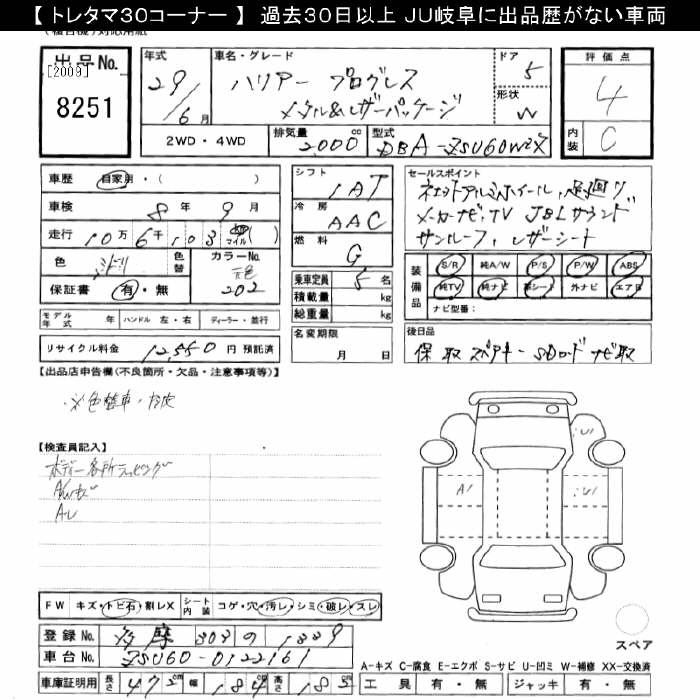 【 トレタマ30コーナー 】 過去30日以上 JU岐阜に出品歴がない車両
出品No.
[2009]
8251
年式
29/6月
車名・グレード
ハリアー プログレス
メタル&レザーパッケージ
ドア
5
形状
W
評価点
4
内装
C
2WD・4WD
排気量
2,000cc
型式
DBA-ZSU60W
車歴 自家用・( )
車検 8年 9月
走行 10万6千103 マイル( )
色
色替
カラーNo.
元色
202
保証書 有・無
シフト
IAT
冷房
AAC
燃料
G
乗車定員 5名
積載量 kg
総重量 kg
名変期限
月 日
セールスポイント
メーカーナビ・TV JBLサウンド
サンルーフ, レザーシート
装備品
S/R 純A/W P/S P/W ABS
純TV 純ナビ 革シート 外ナビ エアB
ナビ型番:
モデル年式 年 ハンドル 左・右 ディーラー・並行
リサイクル料金 12,550円 預託済
後日品
保 取 スペアキー SDカード ナビ取
【出品店申告欄(不良箇所・欠品・注意事項等)】
【検査員記入】
ボディー各所ラッピング
A1
U1
U1
FW キズ・トビ石・割レX シート内装 コゲ・穴・汚レ・シミ・破レ・スレ
登録No. 多摩 303 の 1339
車台No. ZSU60-0122161
車庫証明用 長さ 472cm 幅 184cm 高さ 183cm
スペア
A-キズ C-腐食 E-エクボ S-サビ U-凹ミ W-補修 XX-交換済
工具 有・無 ジャッキ 有・無